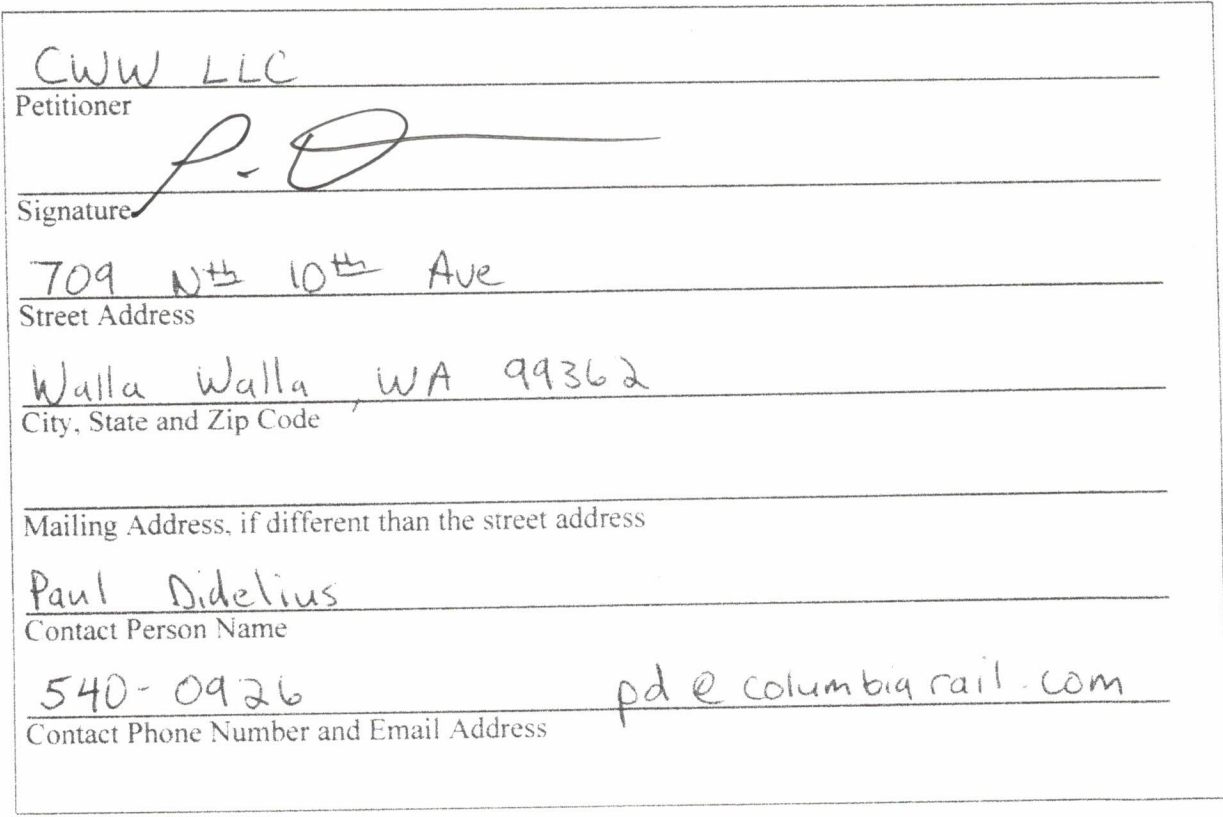 CWW LLC
Petitioner
Signature
709 Nth 10th Ave
Street Address
Walla Walla, WA 99362
City, State and Zip Code
Mailing Address, if different than the street address
Paul Didelius
Contact Person Name
540-0926 pd@columbiarail.com
Contact Phone Number and Email Address